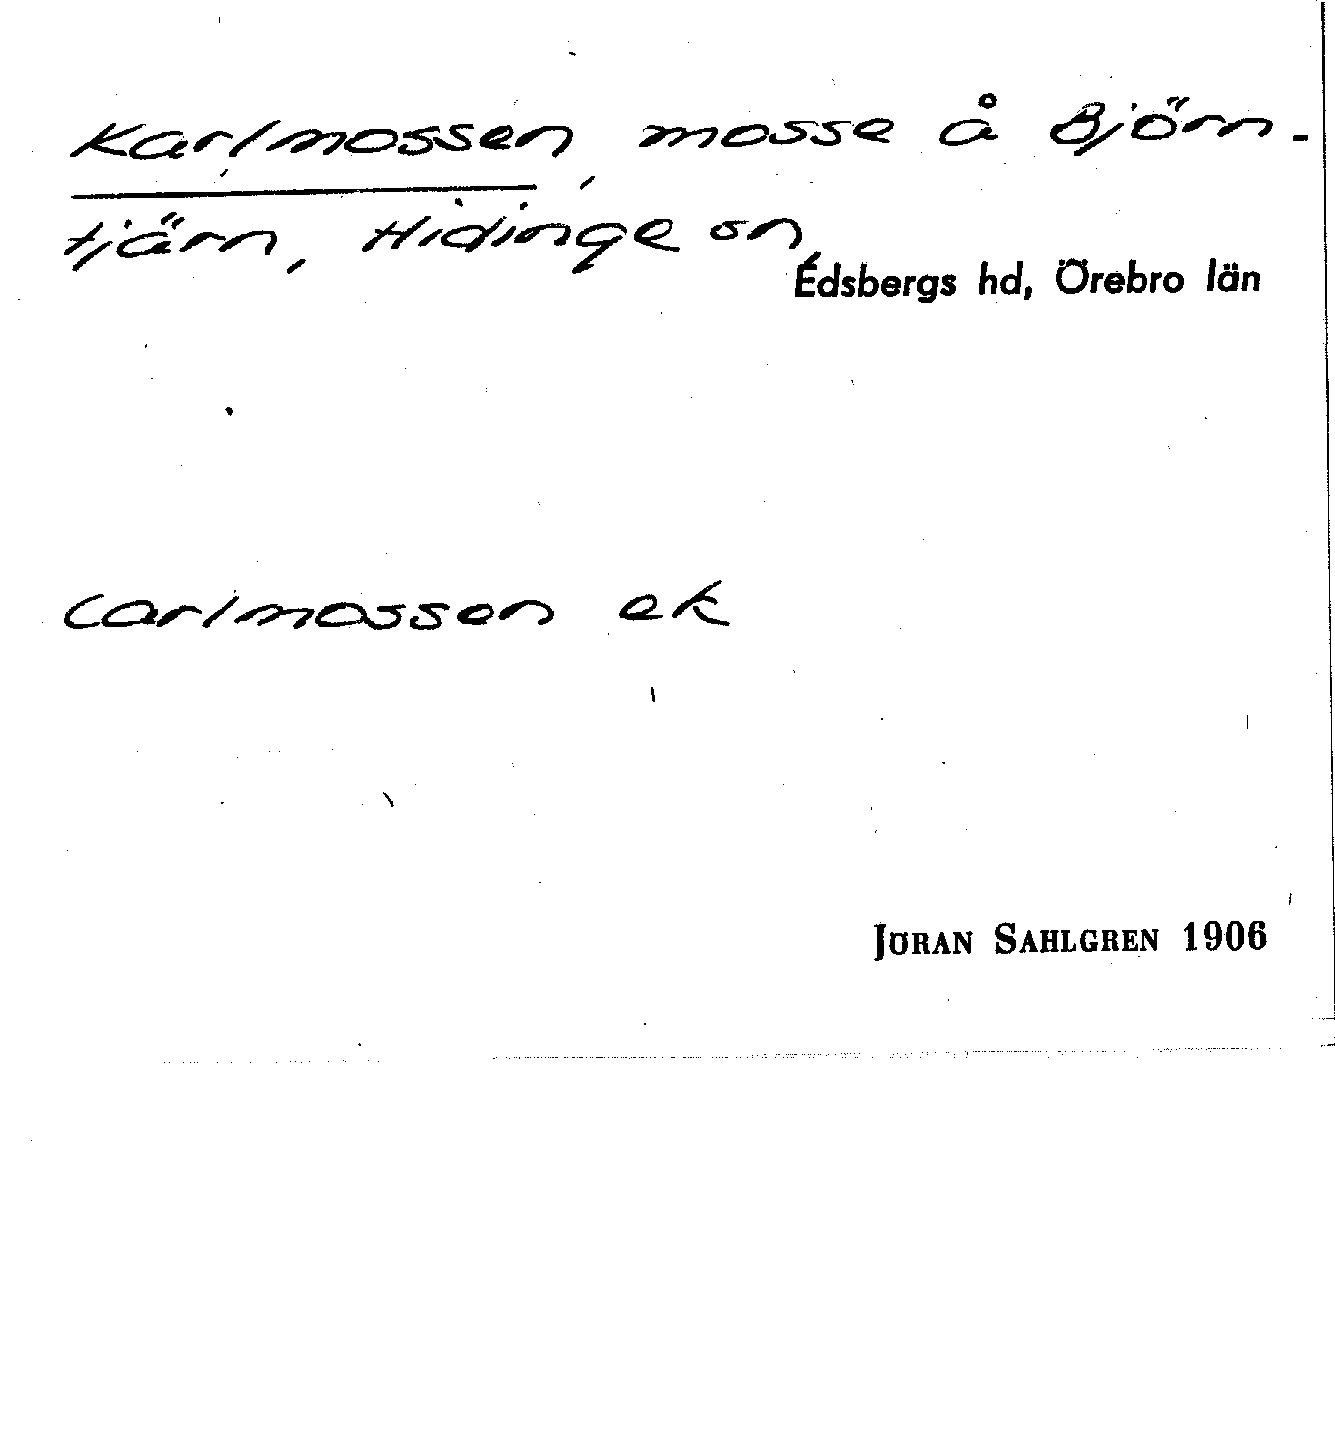 Karlmossen, mosse å Björn-
tjärn, Hidinge sn,
Edsbergs hd, Örebro län
Carlmossen ek
JÖRAN SAHLGREN 1906